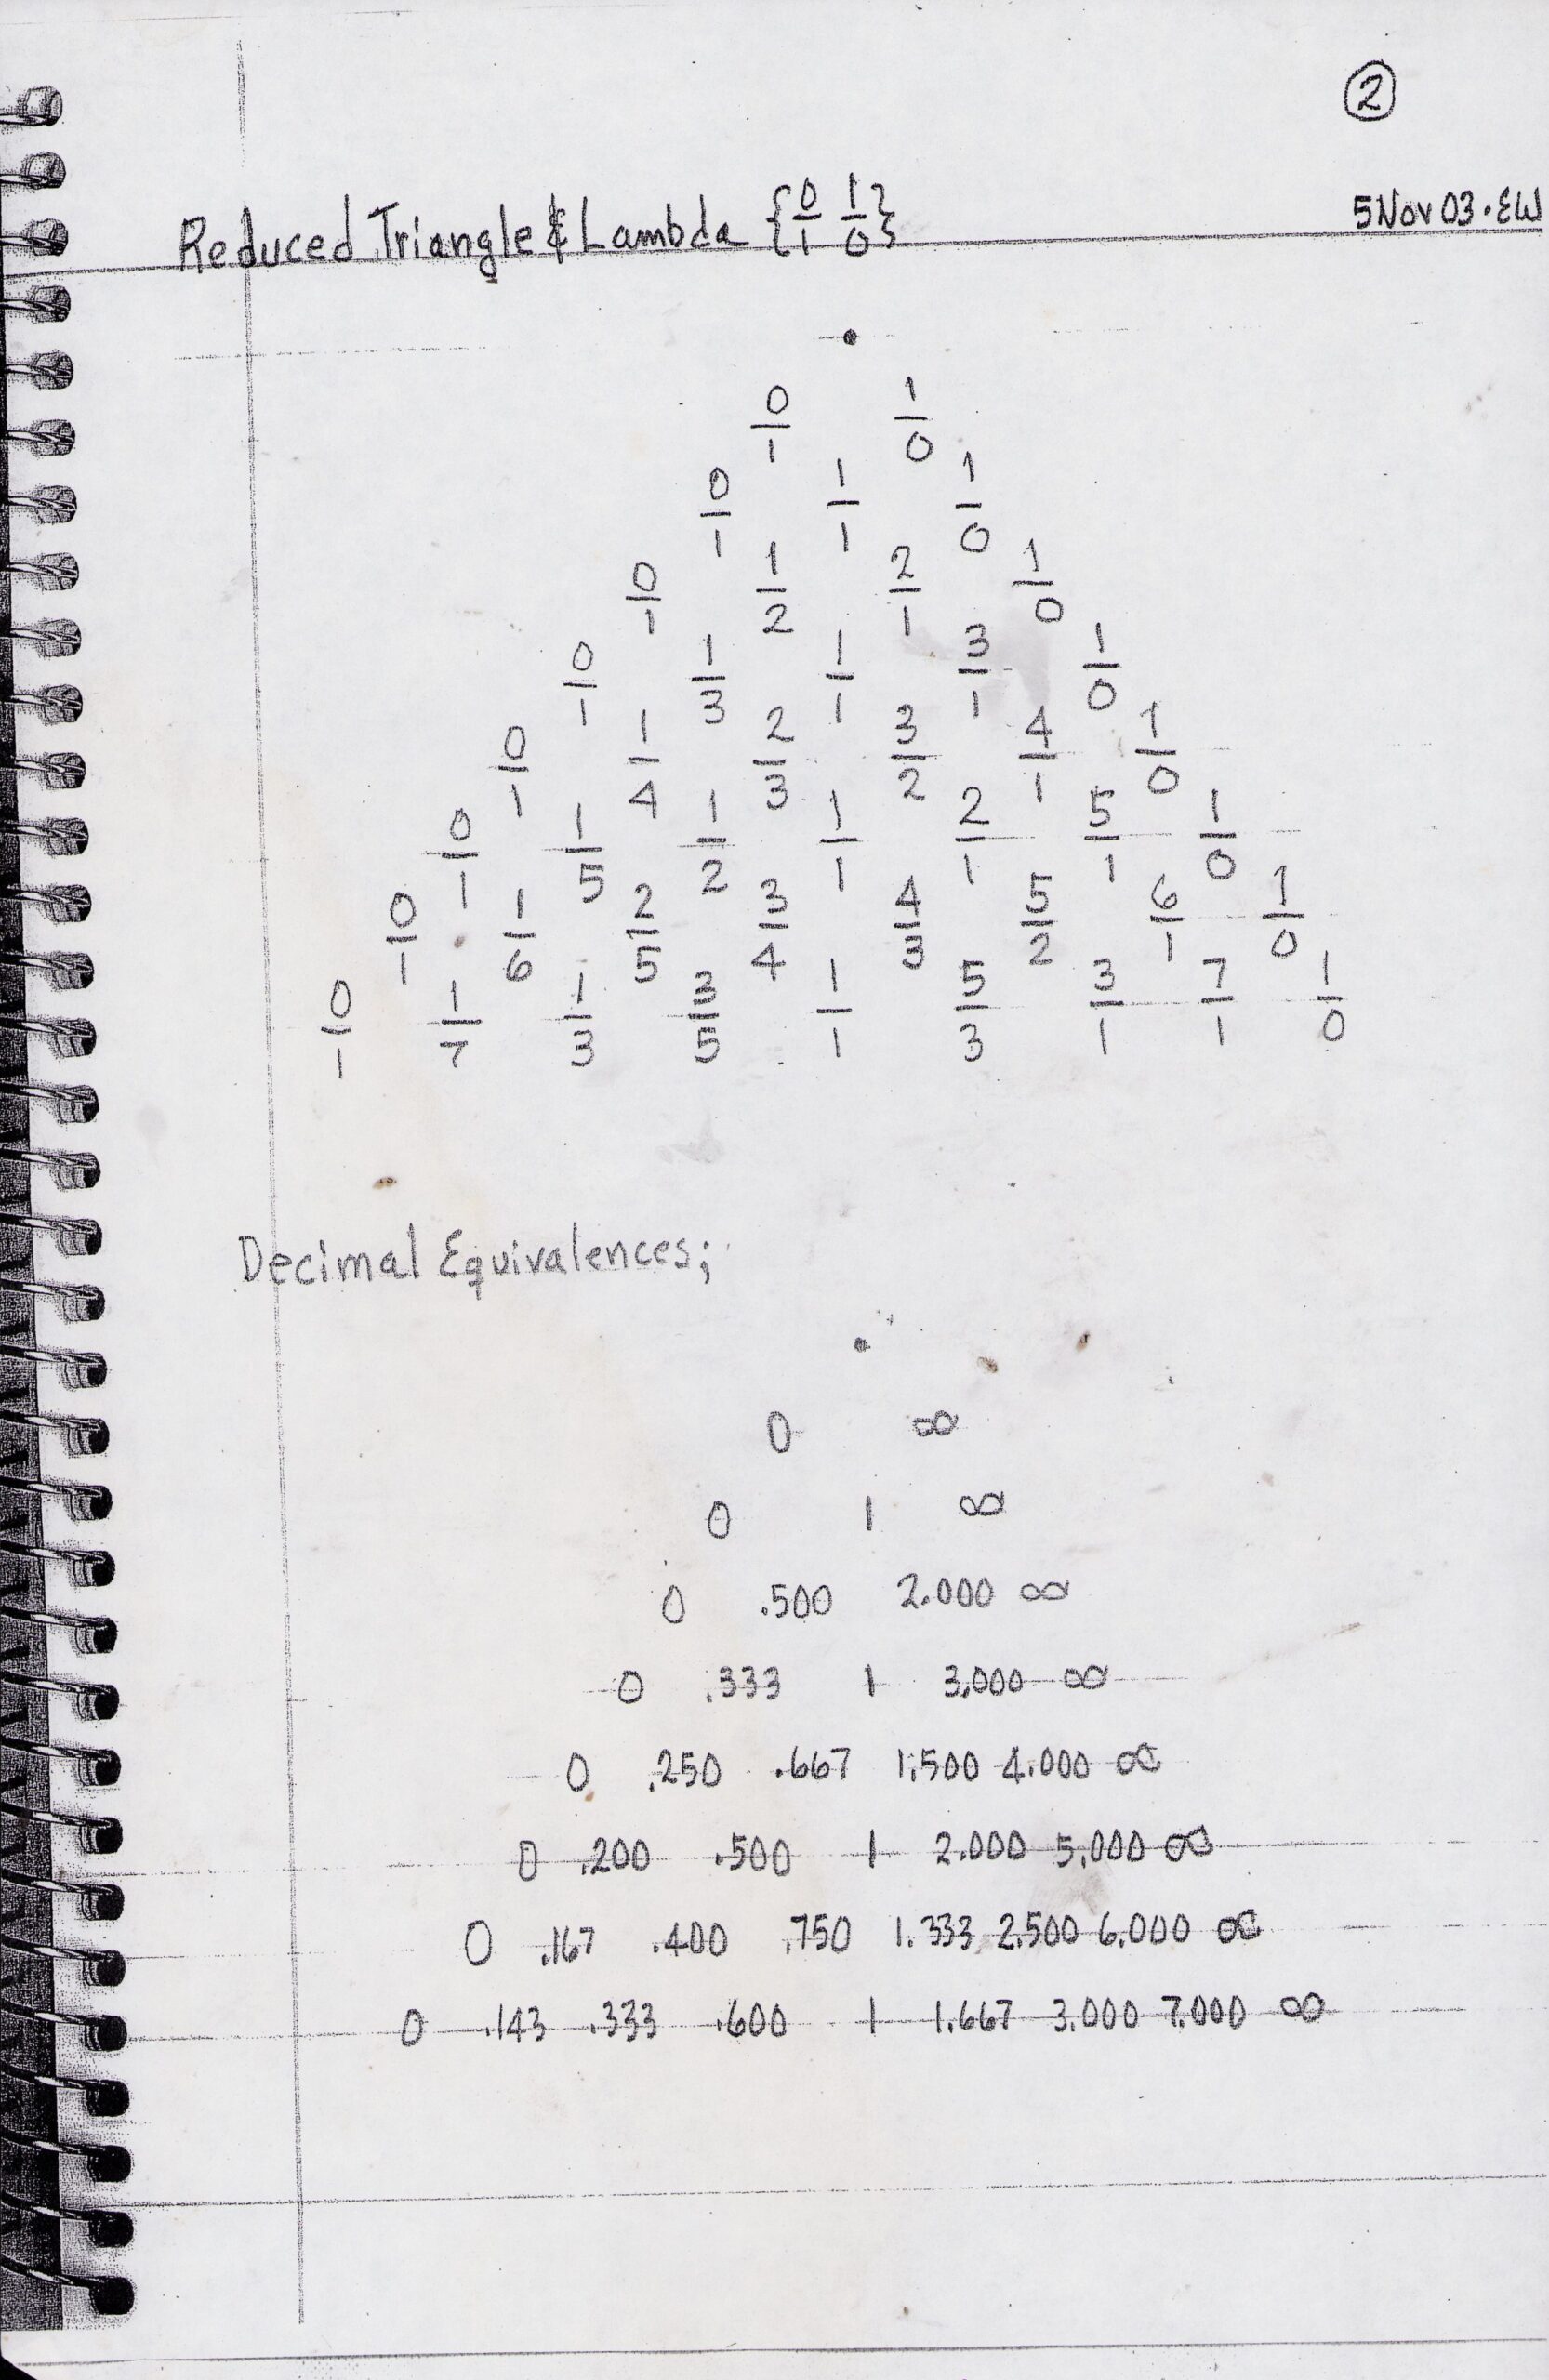 ②
5 Nov 03 • EW
Reduced Triangle & Lambda {0/1 1/0}
0/1 1/0
0/1 1/1 1/0
0/1 1/2 2/1 1/0
0/1 1/3 1/1 3/1 1/0
0/1 1/4 2/3 3/2 4/1 1/0
0/1 1/5 1/2 1/1 2/1 5/1 1/0
0/1 1/6 2/5 3/4 4/3 5/2 6/1 1/0
0/1 1/7 1/3 3/5 1/1 5/3 3/1 7/1 1/0
Decimal Equivalences;
0 ∞
0 1 ∞
0 .500 2.000 ∞
0 .333 1 3.000 ∞
0 .250 .667 1.500 4.000 ∞
0 .200 .500 1 2.000 5.000 ∞
0 .167 .400 .750 1.333 2.500 6.000 ∞
0 .143 .333 .600 1 1.667 3.000 7.000 ∞